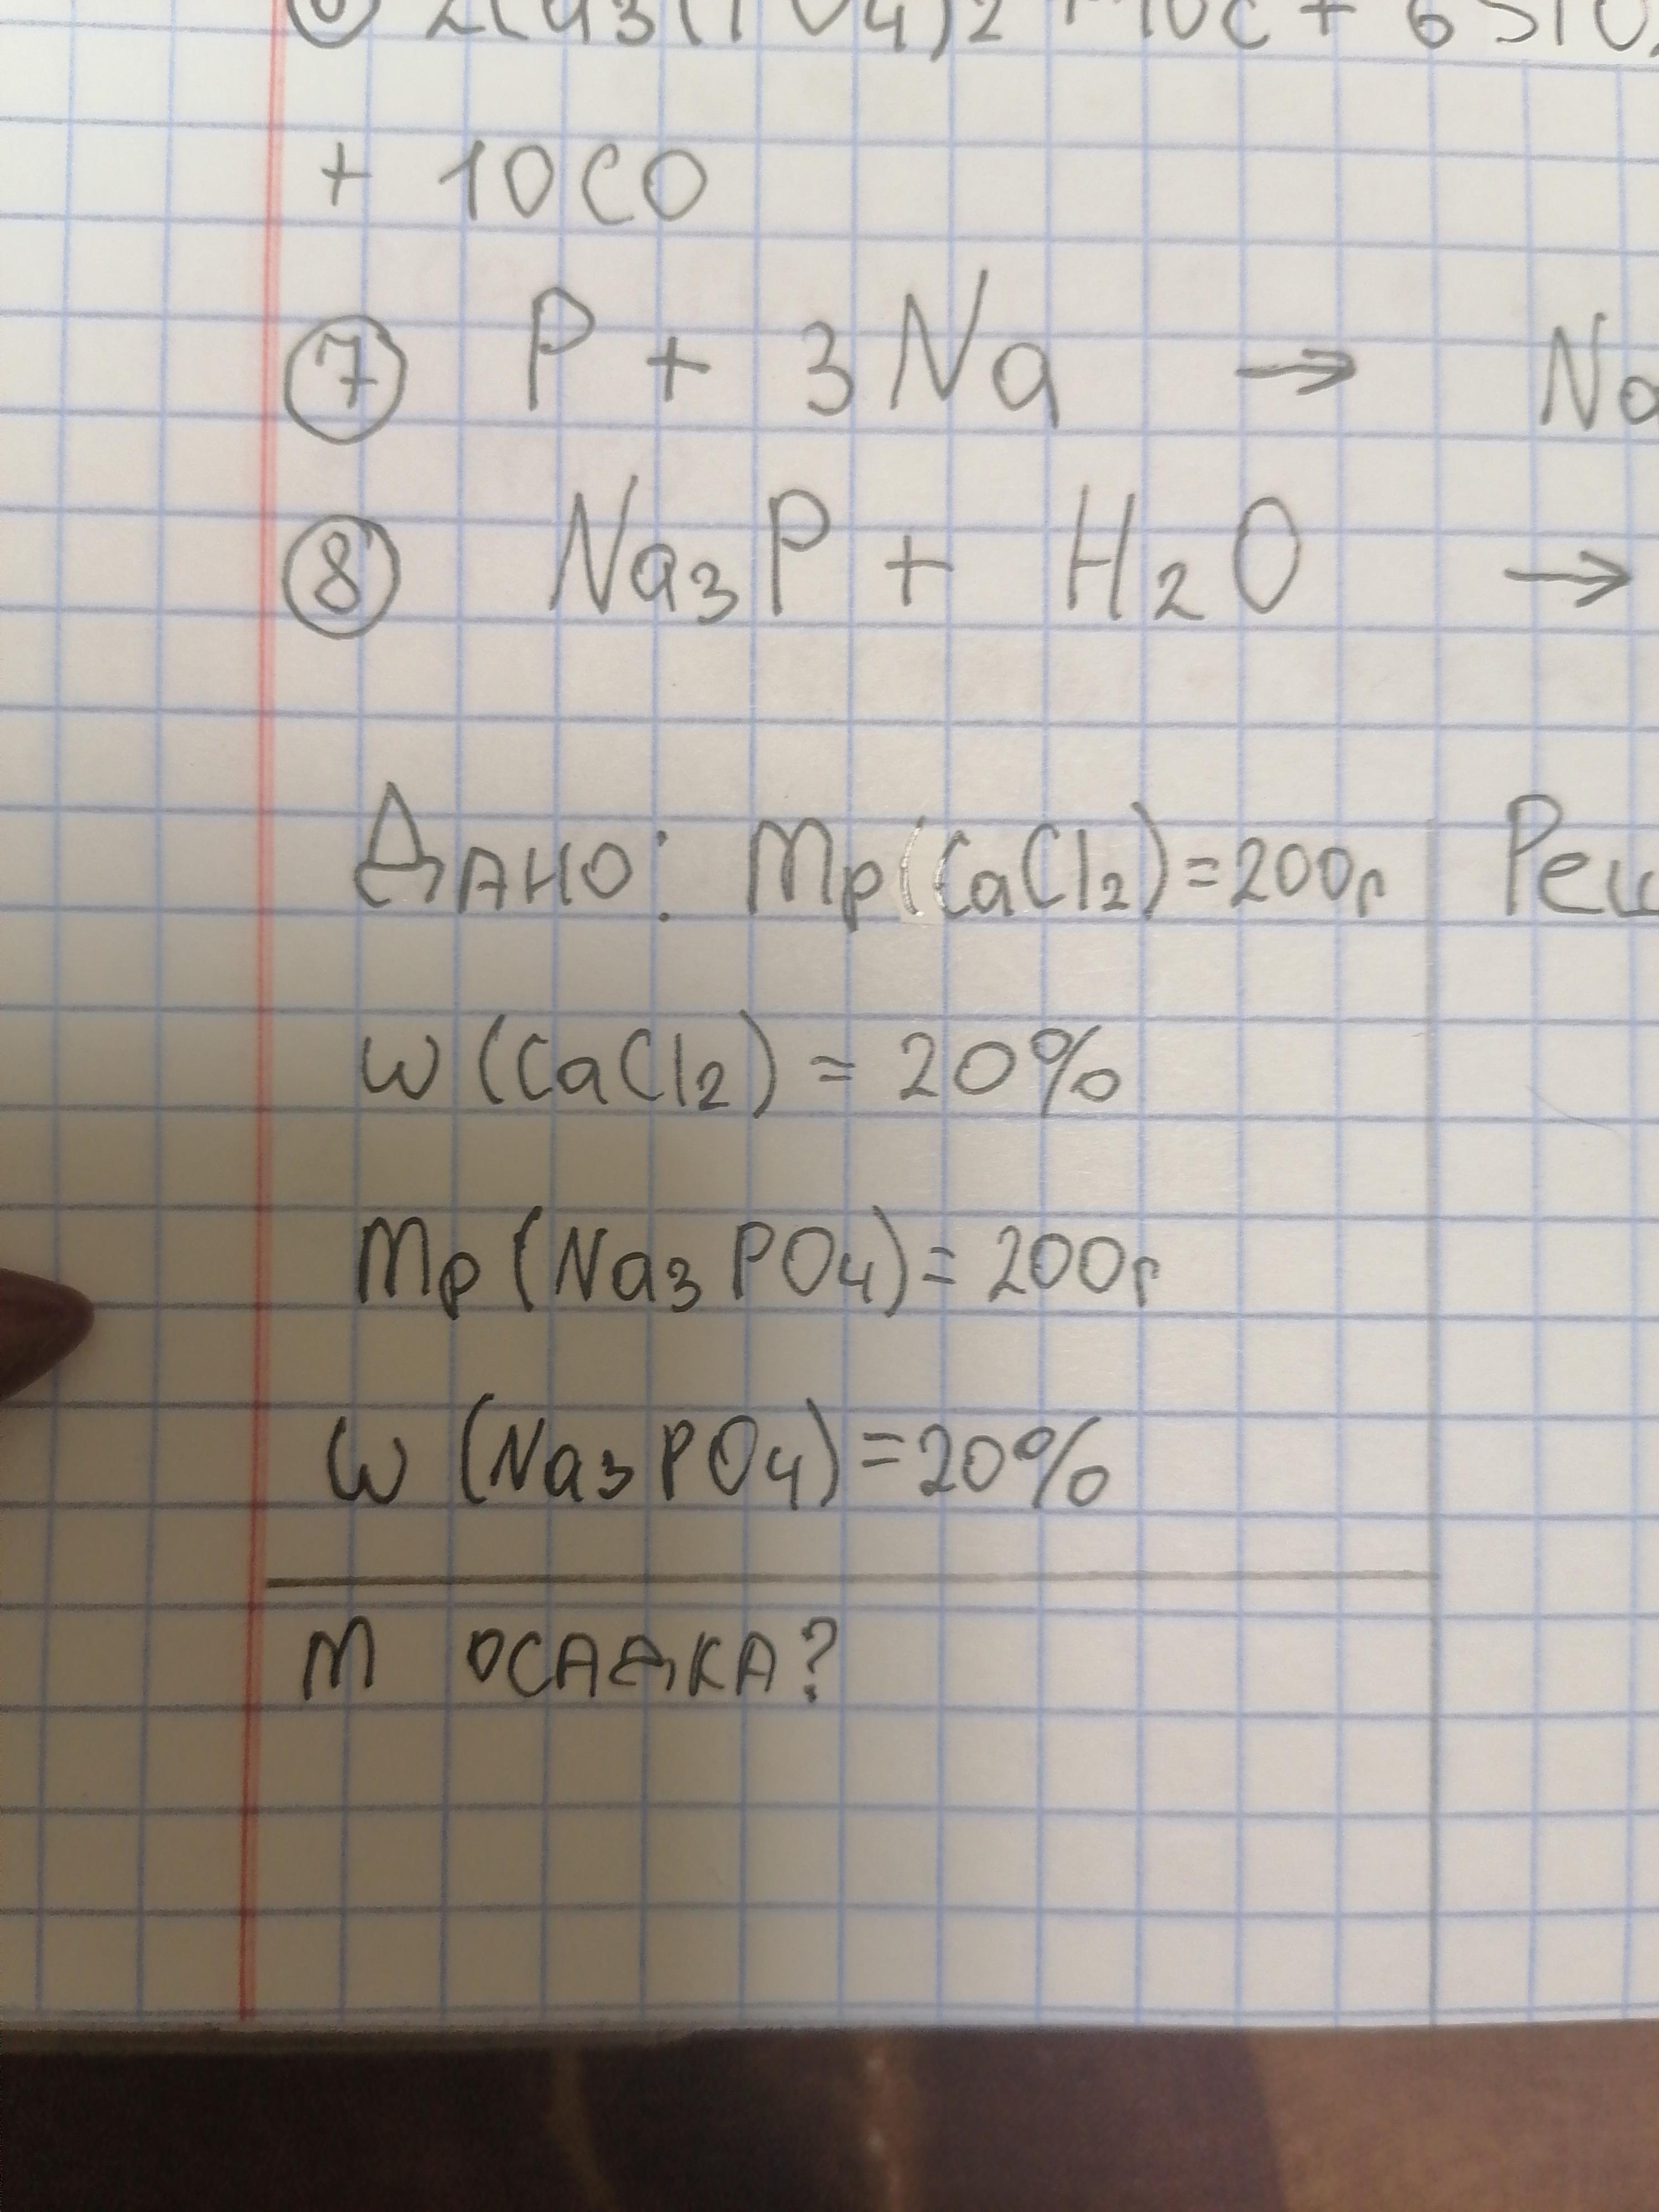 + 10CO
7 P + 3Na → Na
8 Na₃P + H₂O →
ДАНО: Mр(CaCl₂)=200г
Реш
ω (CaCl₂) = 20%
Mр (Na₃PO₄)= 200г
ω (Na₃PO₄)=20%
m ОСАДКА?